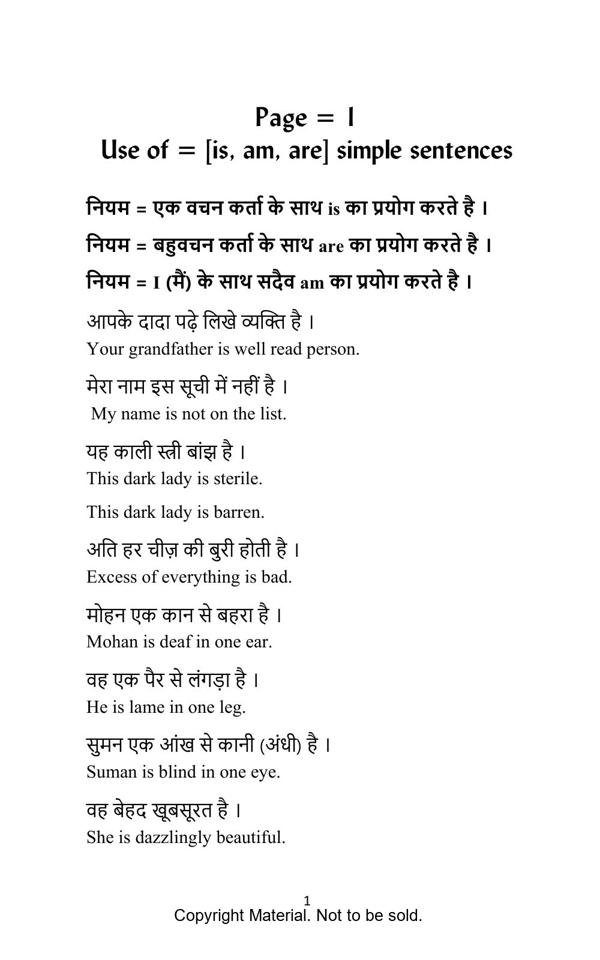 Page = 1
Use of = [is, am, are] simple sentences
नियम = एक वचन कर्ता के साथ is का प्रयोग करते है ।
नियम = बहुवचन कर्ता के साथ are का प्रयोग करते है ।
नियम = I (मैं) के साथ सदैव am का प्रयोग करते है ।
आपके दादा पढ़े लिखे व्यक्ति है ।
Your grandfather is well read person.
मेरा नाम इस सूची में नहीं है ।
My name is not on the list.
यह काली स्त्री बांझ है ।
This dark lady is sterile.
This dark lady is barren.
अति हर चीज़ की बुरी होती है ।
Excess of everything is bad.
मोहन एक कान से बहरा है ।
Mohan is deaf in one ear.
वह एक पैर से लंगड़ा है ।
He is lame in one leg.
सुमन एक आंख से कानी (अंधी) है ।
Suman is blind in one eye.
वह बेहद खूबसूरत है ।
She is dazzlingly beautiful.
1
Copyright Material. Not to be sold.